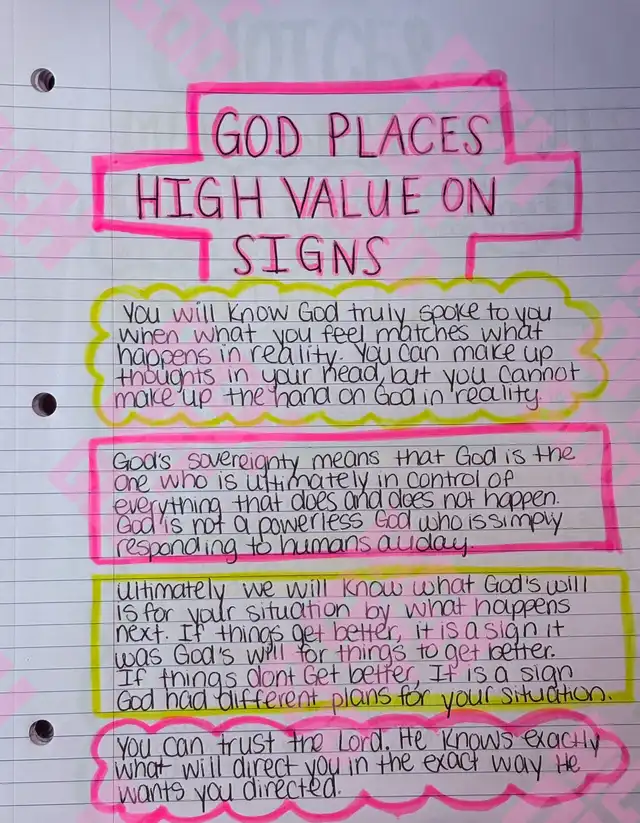 GOD PLACES
HIGH VALUE ON
SIGNS
You will know God truly spoke to you
when what you feel matches what
happens in reality. You can make up
thoughts in your head, but you cannot
make up the hand on God in reality.
God's sovereignty means that God is the
one who is ultimately in control of
everything that does and does not happen.
God is not a powerless God who is simply
responding to humans all day.
Ultimately we will know what God's will
is for your situation by what happens
next. If things get better, it is a sign it
was God's will for things to get better.
If things dont Get better, It is a sign
God had different plans for your situation.
You can trust the Lord. He knows exactly
what will direct you in the exact way He
wants you directed.